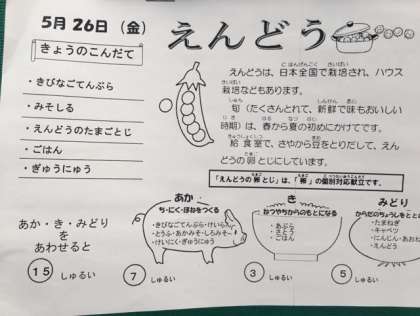 5月26日（金）
えんどう
きょうのこんだて
・きびなごてんぷら
・みそしる
・えんどうのたまごとじ
・ごはん
・ぎゅうにゅう
えんどうは、日本全国で栽培され、ハウス
栽培などもあります。
旬（たくさんとれて、新鮮で味もおいしい
時期）は、春から夏の初めにかけてです。
給食室で、さやから豆をとりだして、えん
どうの卵とじにしています。
「えんどうの卵とじ」は、「卵」の個別対応献立です。
あか・き・みどり
を
あわせると
15 しゅるい
あか
ち・にく・ほねをつくる
・きびなごてんぷら・けいらん
・とうふ・あかみそ・しろみそ
・けいにく・ぎゅうにゅう
7 しゅるい
き
ねつやちからのもとになる
・あぶら
・さとう
・ごはん
3 しゅるい
みどり
からだのちょうしをとと
・たまねぎ
・キャベツ
・にんじん・あおね
・えんどう
5 しゅるい